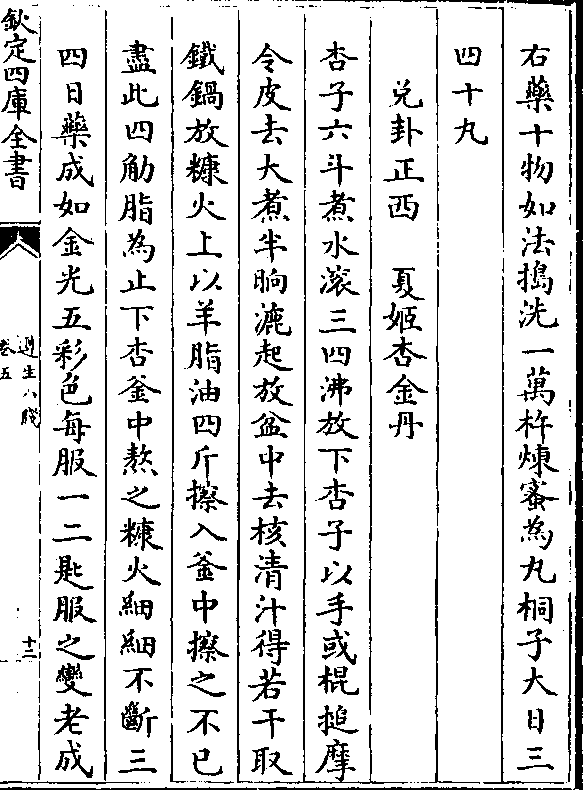 右藥十物如法搗洗一萬杵煉蜜為丸桐子大日三
四十丸
兌卦正西　夏姬杏金丹
杏子六斗煮水滾三四沸放下杏子以手或棍搥摩
令皮去大煮半晌漉起放盆中去核清汁得若干取
鐵鍋放糠火上以羊脂油四斤擦入釜中擦之不已
盡此四觔脂為止下杏釜中熬之糠火細細不斷三
四日藥成如金光五彩色每服一二匙服之變老成
欽定四庫全書
遵生八牋
卷五
十三